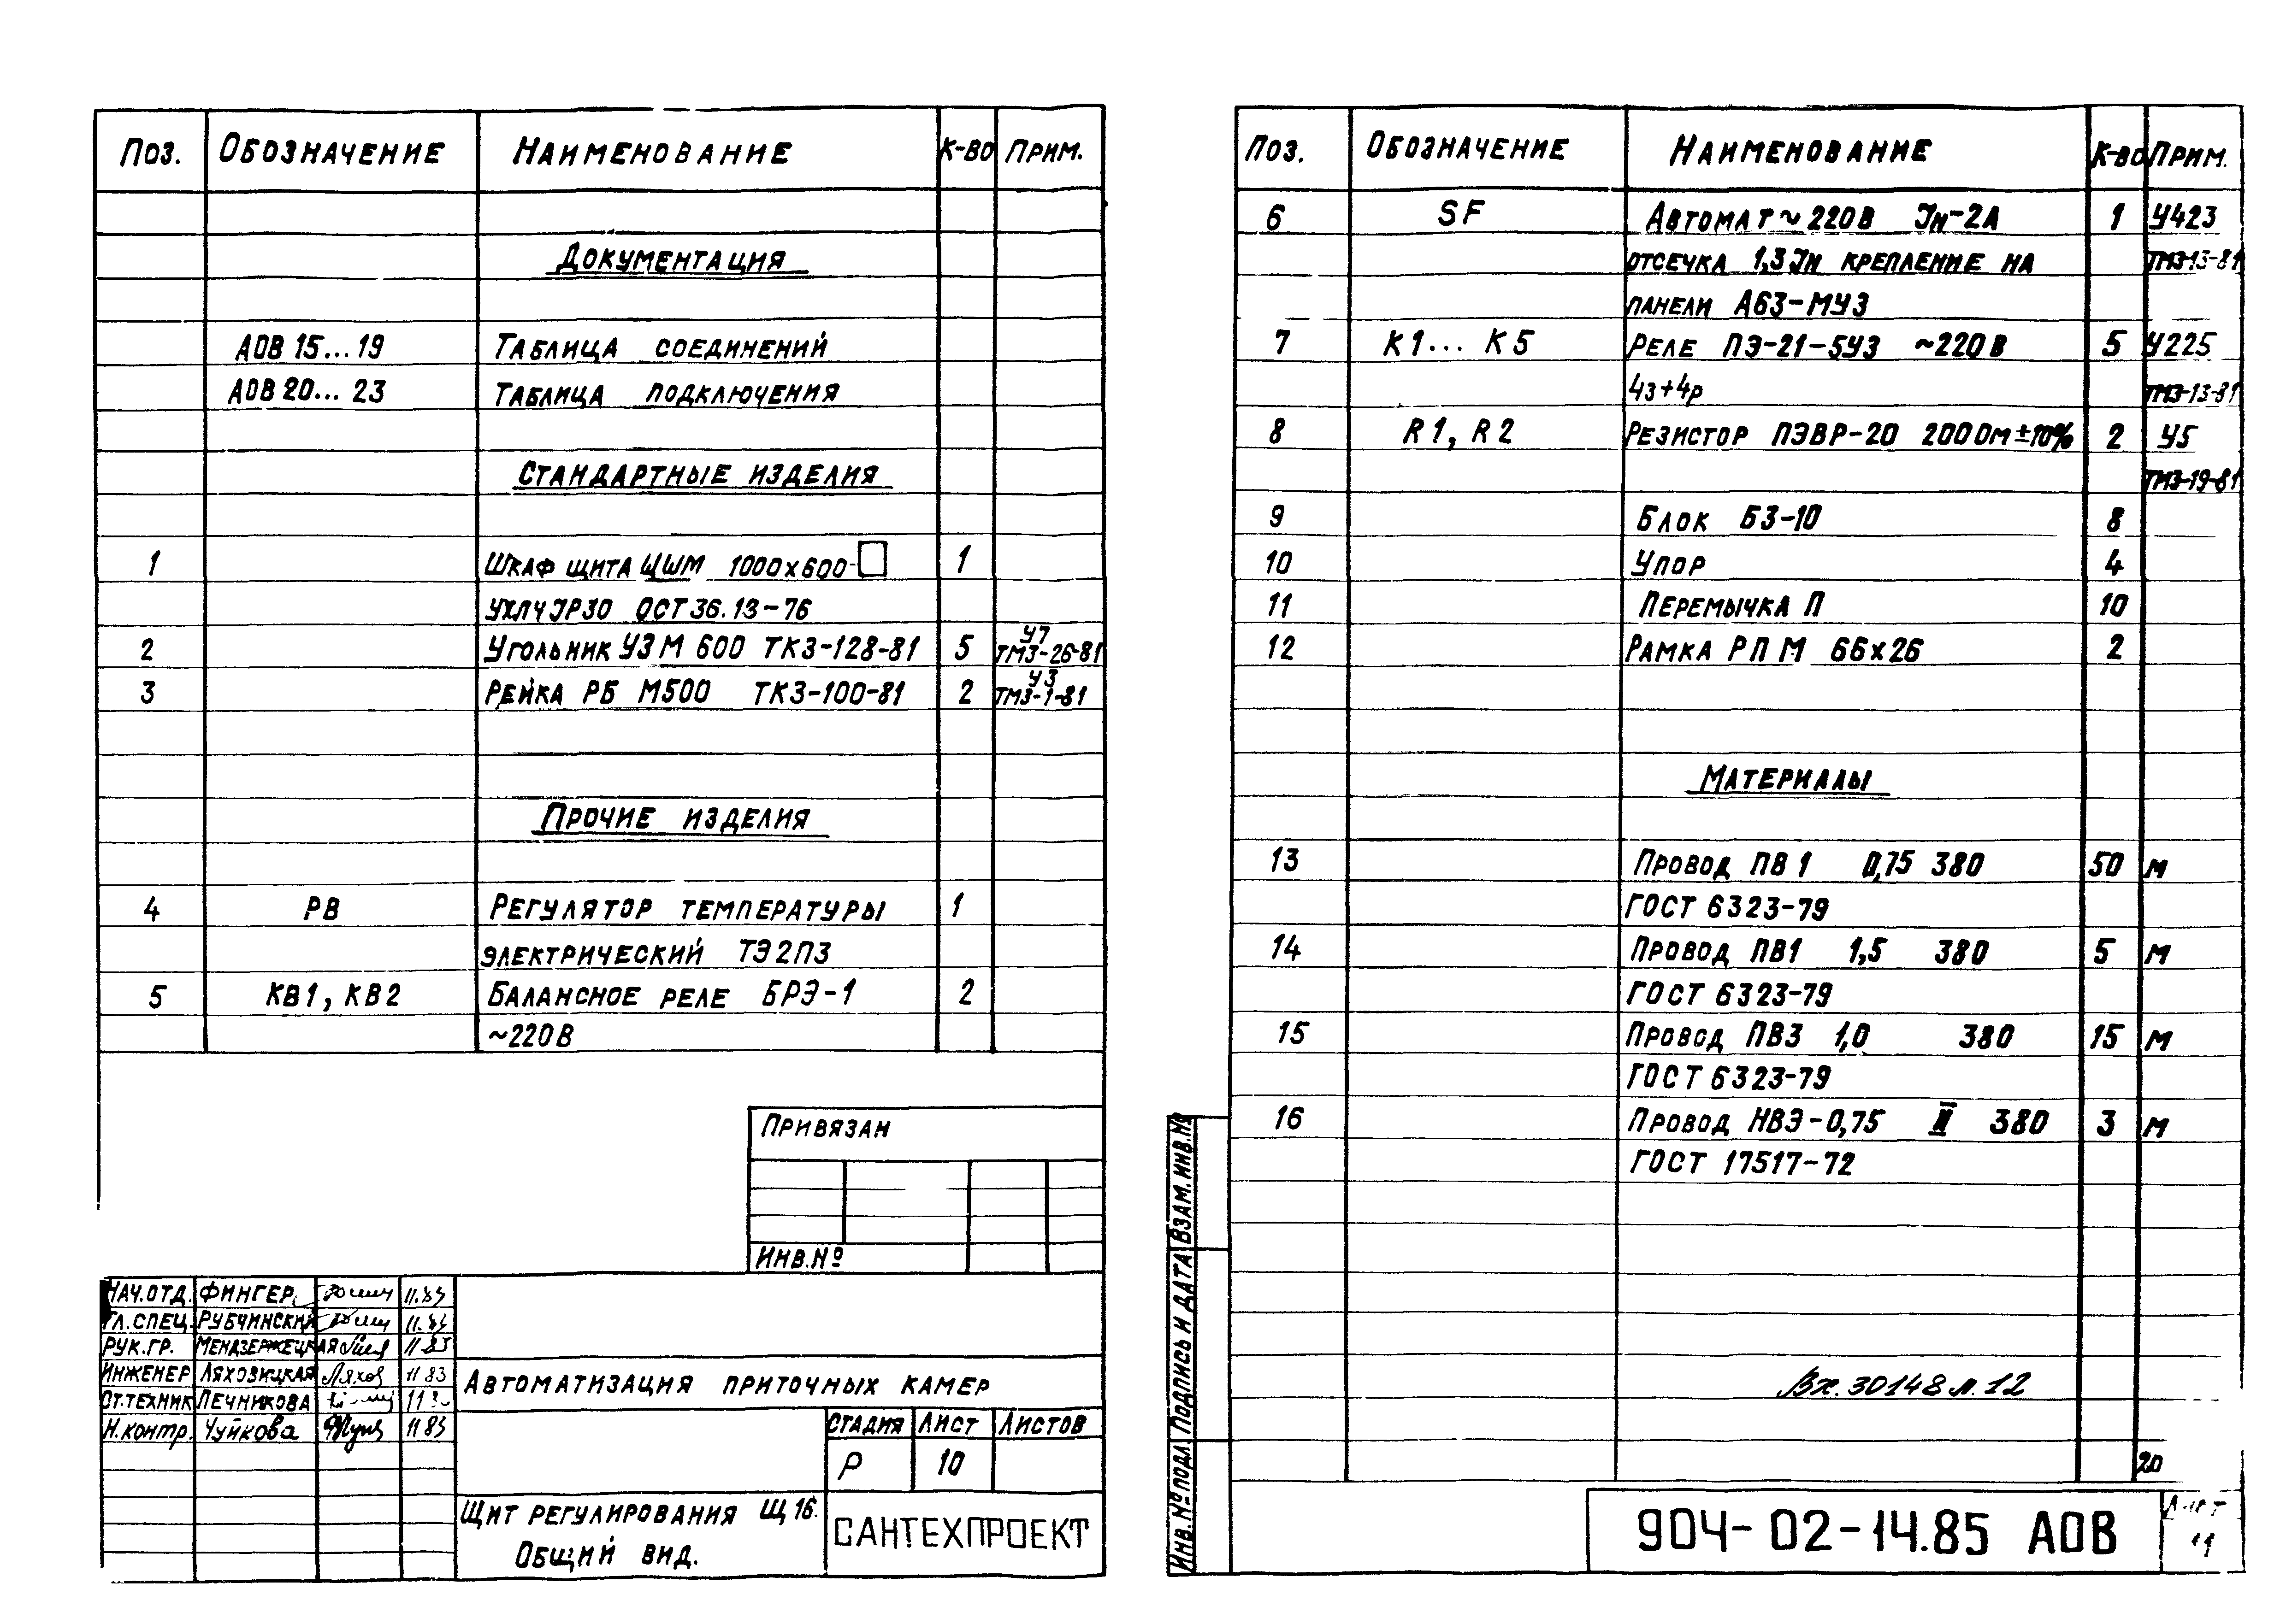 Поз. Обозначение Наименование К-во Прим.
Документация
АОВ 15...19 Таблица соединений
АОВ 20...23 Таблица подключения
Стандартные изделия
1 Шкаф щита ЩШМ 1000х600-□ 1
УХЛЧ IP30 ОСТ 36.13-76
2 Угольник УЗМ 600 ТКЗ-128-81 5 У7 ТМЗ-26-81
3 Рейка РБ М500 ТКЗ-100-81 2 У3 ТМЗ-1-81
Прочие изделия
4 РВ Регулятор температуры 1
электрический ТЭ2П3
5 КВ1, КВ2 Балансное реле БРЭ-1 2
~220В
Привязан
Инв.№
Нач.отд. Фингер 11.83
Гл.спец. Рубчинский 11.83
Рук.гр. Мендзержецкая 11 83
Инженер Ляховицкая Ляхов 11 83
Ст.техник Печникова
Н.контр. Чуйкова 11 83
Автоматизация приточных камер
Стадия Лист Листов
Р 10
Щит регулирования Щ16.
Общий вид.
САНТЕХПРОЕКТ
Поз. Обозначение Наименование К-во Прим.
6 SF Автомат ~220В Iн-2А 1 У423
отсечка 1,3 Iн крепление на ТМЗ-13-81
панели А63-МУ3
7 К1... К5 Реле ПЭ-21-5У3 ~220В 5 У225
4з+4р ТМЗ-13-81
8 R1, R2 Резистор ПЭВР-20 200Ом ±10% 2 У5
ТМЗ-19-81
9 Блок БЗ-10 8
10 Упор 4
11 Перемычка П 10
12 Рамка РПМ 66х26 2
Материалы
13 Провод ПВ1 0,75 380 50 м
ГОСТ 6323-79
14 Провод ПВ1 1,5 380 5 м
ГОСТ 6323-79
15 Провод ПВ3 1,0 380 15 м
ГОСТ 6323-79
16 Провод НВЭ-0,75 II 380 3 м
ГОСТ 17517-72
Вх. 30148 л. 12
20
904-02-14.85 АОВ
Лист
11
Инв.№подл. Подпись и дата Взам.инв.№